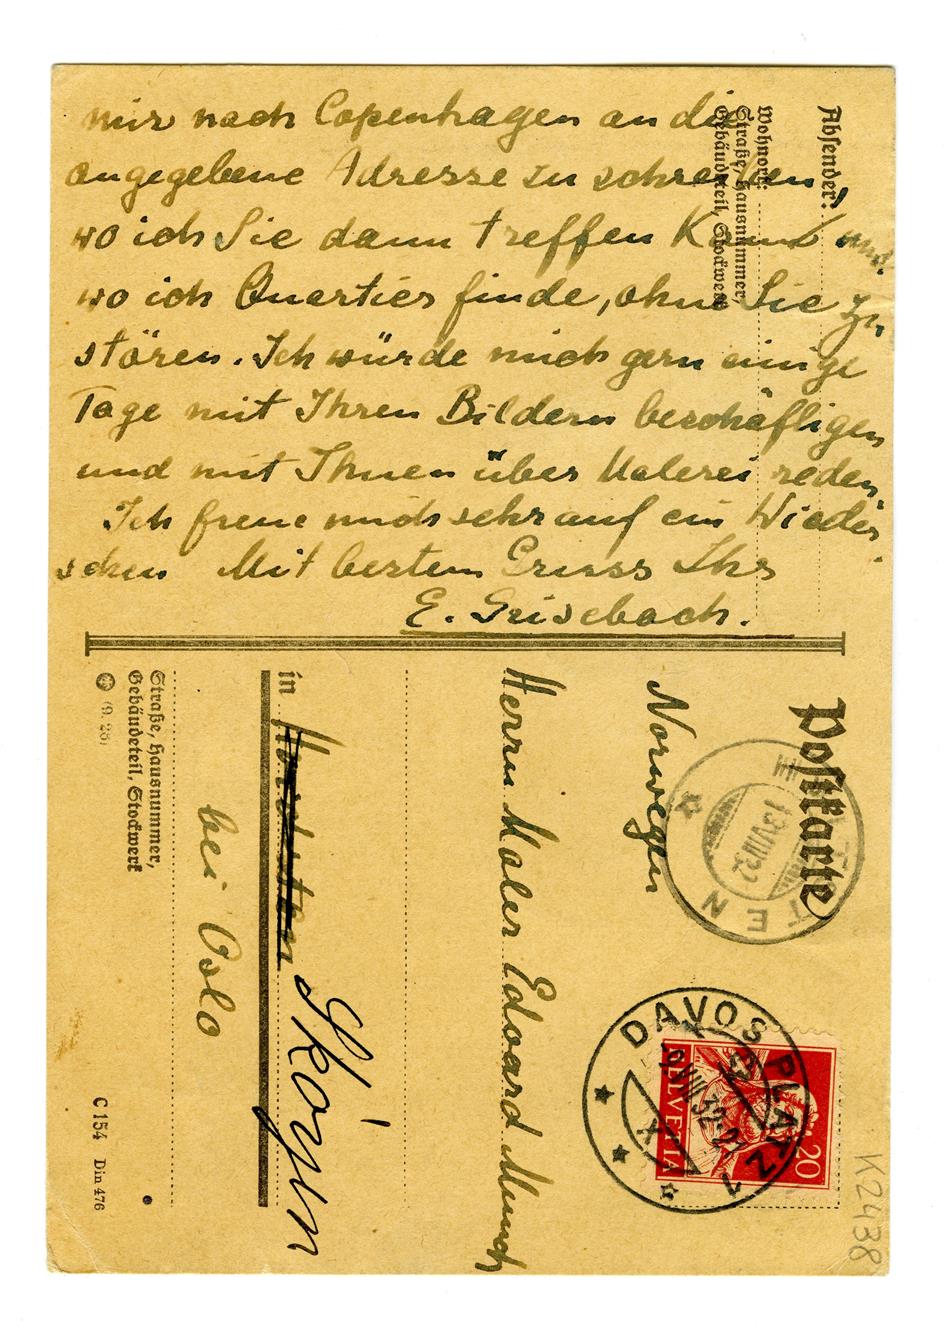 mir nach Copenhagen an die
angegebene Adresse zu schreiben
wo ich Sie dann treffen kann und
wo ich Quartier finde, ohne Sie zu
stören. Ich würde mich gern einige
Tage mit Ihren Bildern beschäftigen
und mit Ihnen über Malerei reden.
Ich freue mich sehr auf ein Wieder
sehen Mit bestem Gruss Ihr
E. Grisebach.
Absender:
Wohnort:
Straße, Hausnummer,
Gebäudeteil, Stockwerk
Postkarte
TTEN
13 VIII 32
DAVOS PLATZ 1
-9.VIII.32-21
X
HELVETIA
20
K2438
Norwegen
Herrn Maler Edvard Munch
in
Sköyen
bei Oslo
Straße, Hausnummer,
Gebäudeteil, Stockwerk
(9. 28)
C 154 Din 476